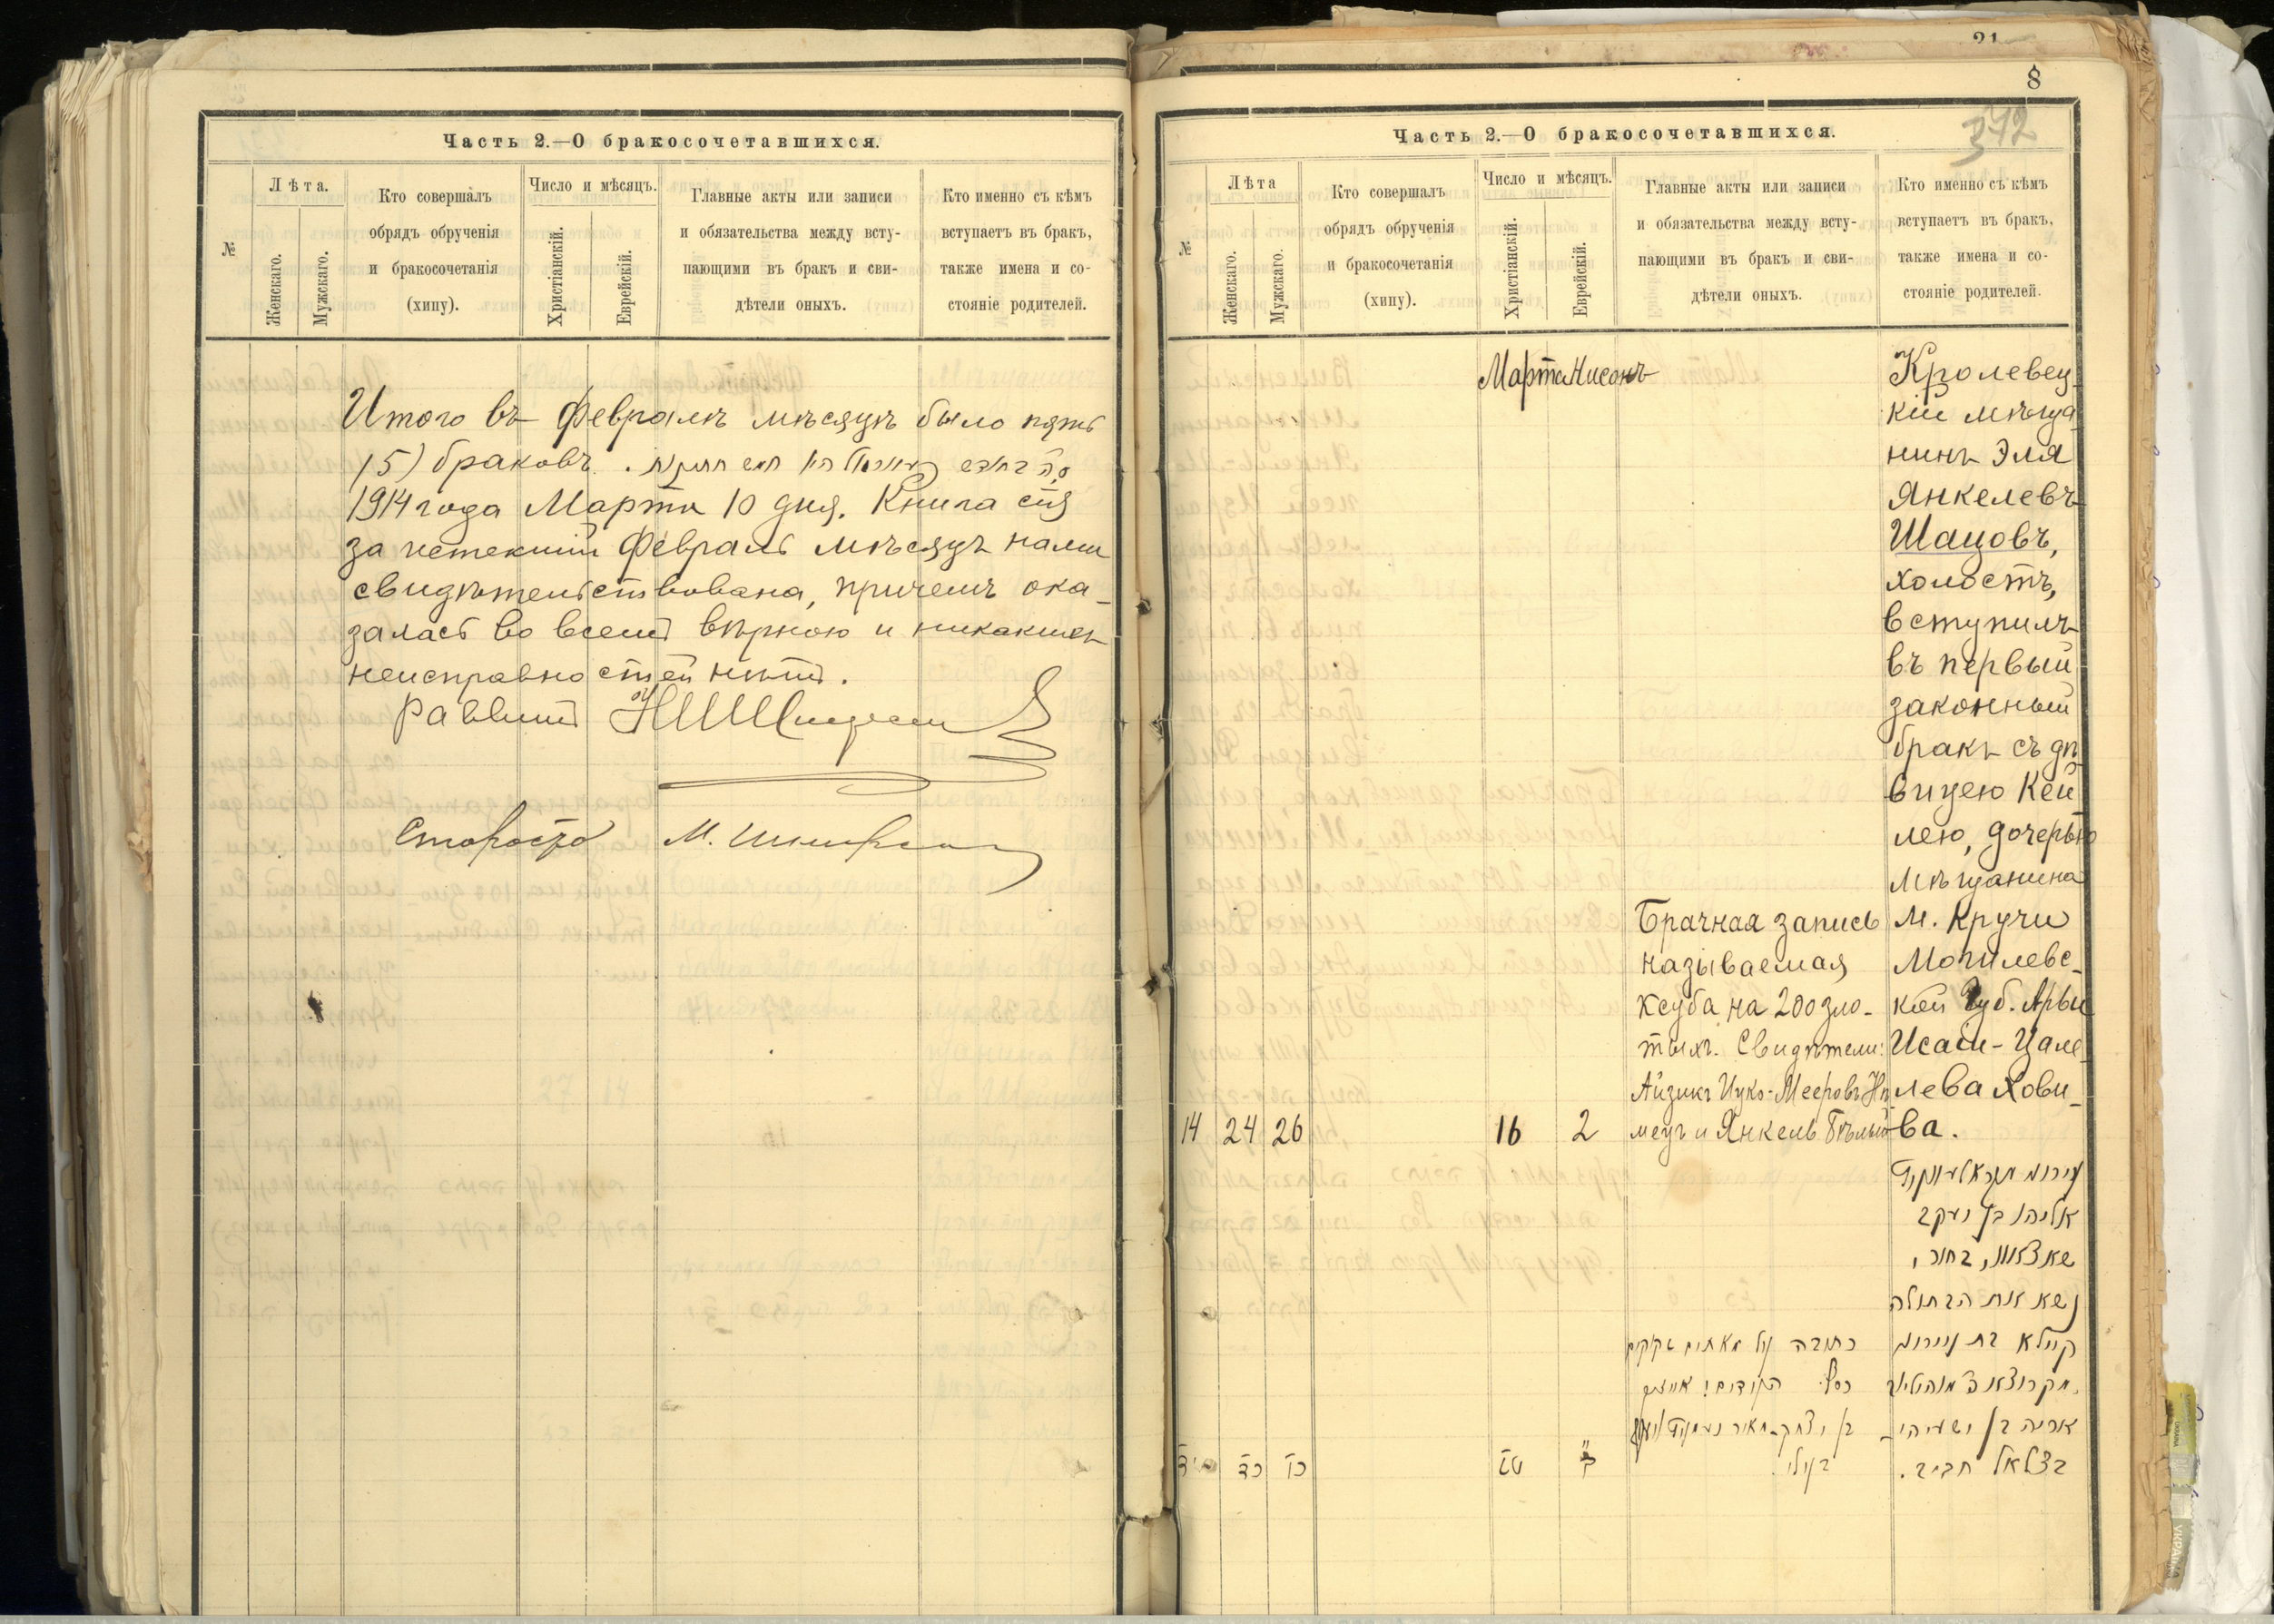 21
8
372
Часть 2.—О бракосочетавшихся.
№
Лѣта.
Женскаго.
Мужскаго.
Кто совершалъ
обрядъ обрученія
и бракосочетанія
(хипу).
Число и мѣсяцъ.
Христіанскій.
Еврейскій.
Главные акты или записи
и обязательства между всту-
пающими въ бракъ и сви-
дѣтели оныхъ.
Кто именно съ кѣмъ
вступаетъ въ бракъ,
также имена и со-
стояніе родителей.
Итого въ Февралѣ мѣсяцѣ было пять
(5) браковъ.
1914 года Марта 10 дня. Книга сія
за истекшій Февраль мѣсяцъ нами
свидѣтельствована, причемъ ока-
залась во всемъ вѣрною и никакихъ
неисправностей нѣтъ.
Раввинъ
Староста М.
Часть 2.—О бракосочетавшихся.
№
Лѣта
Женскаго.
Мужскаго.
Кто совершалъ
обрядъ обрученія
и бракосочетанія
(хипу).
Число и мѣсяцъ.
Христіанскій.
Еврейскій.
Главные акты или записи
и обязательства между всту-
пающими въ бракъ и сви-
дѣтели оныхъ.
Кто именно съ кѣмъ
вступаетъ въ бракъ,
также имена и со-
стояніе родителей.
Марта Нисонъ
14 24 26 16 2
Брачная запись
называемая
Ксуба на 200 зло-
тыхъ. Свидѣтели:
Айзикъ Ицко-Мееровъ Нѣ
мецъ и Янкель Бѣлый
Кролевец-
кій мѣща-
нинъ Эля
Янкелевъ
Шацовъ,
холостъ,
вступилъ
въ первый
законный
бракъ съ дѣ
вицею Кей
лею, дочерью
мѣщанина
м. Кручи
Могилевс-
кой Губ. Арьи
Исаій-Цале-
лева Хови-
ва.
אליהו בן יעקב
בחור,
נשא את הבתולה
קיילא בת
אריה בן ישעיהו-
בצלאל חביב.
כתובה על מאתים זקוקים
כסף. העדים:
בן יצחק-מאיר
כד כו טז ב